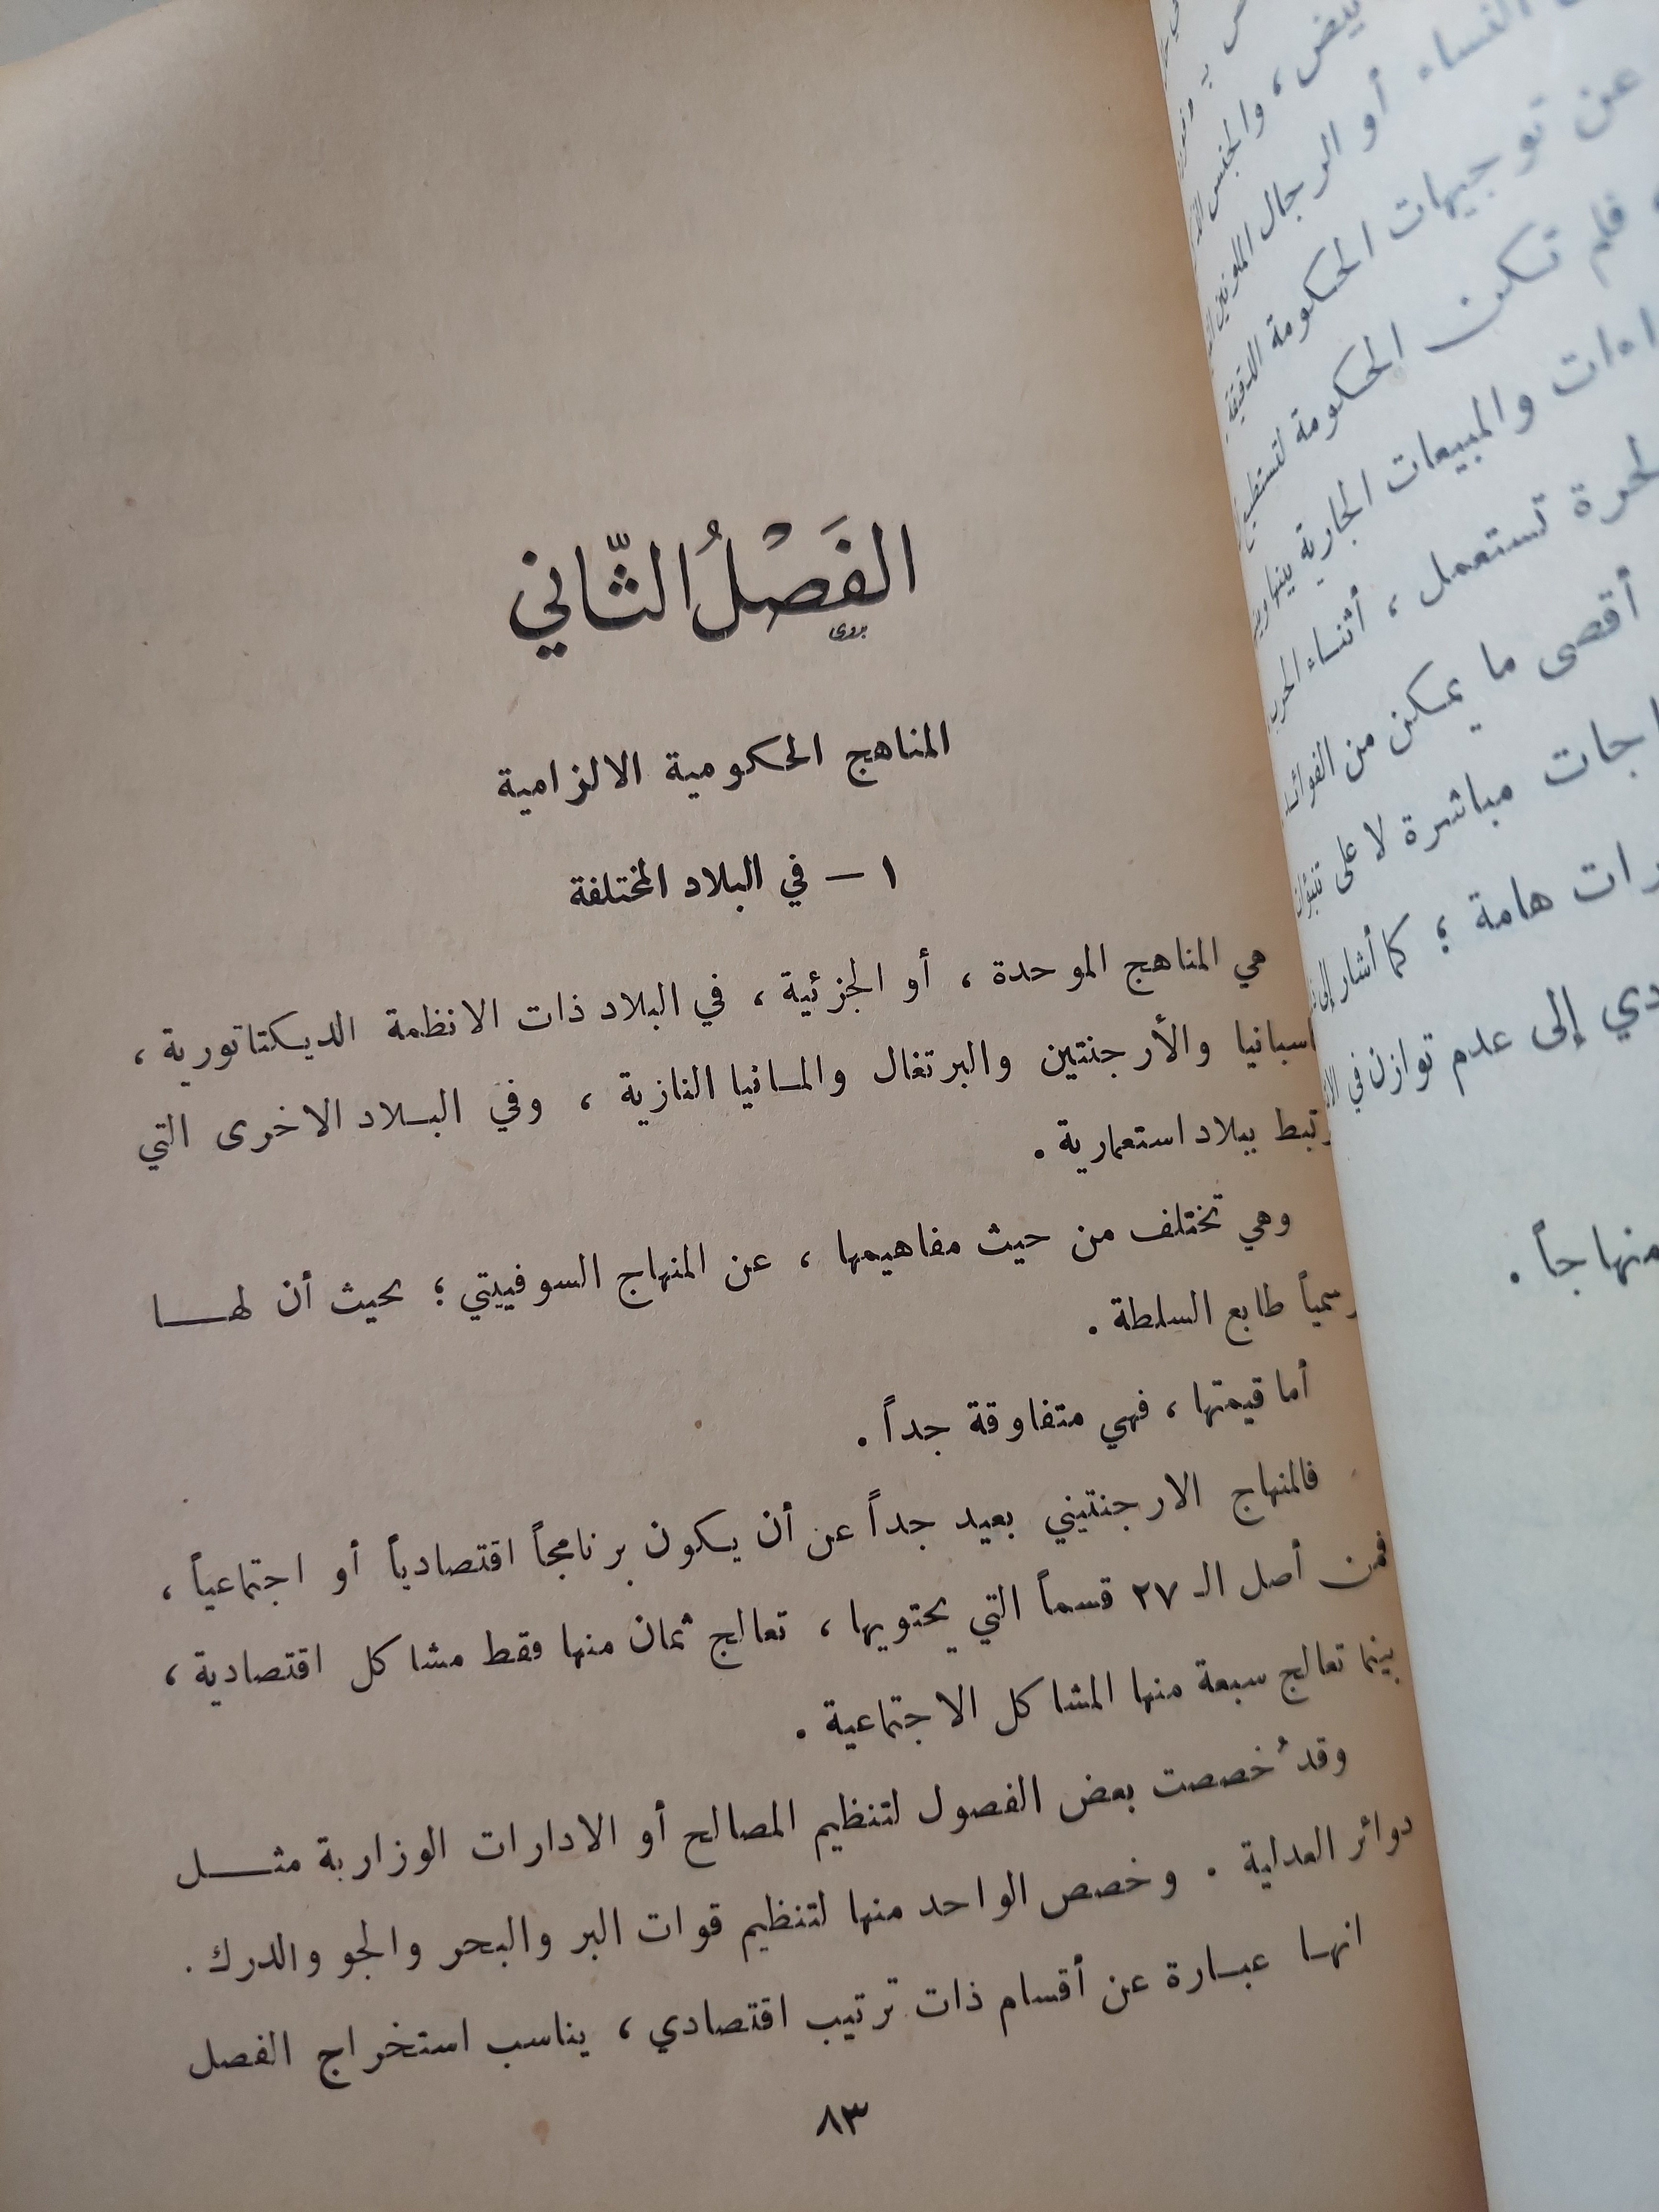 الفَصْلُ الثَّاني
المناهج الحكومية الالزامية
١ – في البلاد المختلفة
هي المناهج الموحدة ، أو الجزئية ، في البلاد ذات الانظمة الديكتاتورية ،
اسبانيا والأرجنتين والبرتغال والمانيا النازية ، وفي البلاد الاخرى التي
ببلاد استعمارية .
وهي تختلف من حيث مفاهيمها ، عن المنهاج السوفييتي ؛ بحيث أن لها
رسمياً طابع السلطة .
أما قيمتها ، فهي متفاوتة جداً .
فالمنهاج الارجنتيني بعيد جداً عن أن يكون برنامجاً اقتصادياً أو اجتماعياً ،
فمن أصل الـ ٢٧ قسماً التي يحتويها ، تعالج ثمان منها فقط مشاكل اقتصادية ،
بينما تعالج سبعة منها المشاكل الاجتماعية .
وقد خُصصت بعض الفصول لتنظيم المصالح أو الادارات الوزارية مثل
دوائر العدلية . وخصص الواحد منها لتنظيم قوات البر والبحر والجو والدرك .
انها عبارة عن أقسام ذات ترتيب اقتصادي ، يناسب استخراج الفصل
٨٣
بيض ، والجنس
النساء أو الرجال الملونين
عن توجيهات الحكومة الدقيقة
فلم تكن الحكومة لتستطيع
والمبيعات الجارية
تستعمل ، أثناء الحرب
أقصى ما يمكن من الفوائد
مباشرة لا على
هامة ؛ كما أشار إلى
إلى عدم توازن في
منهاجاً .